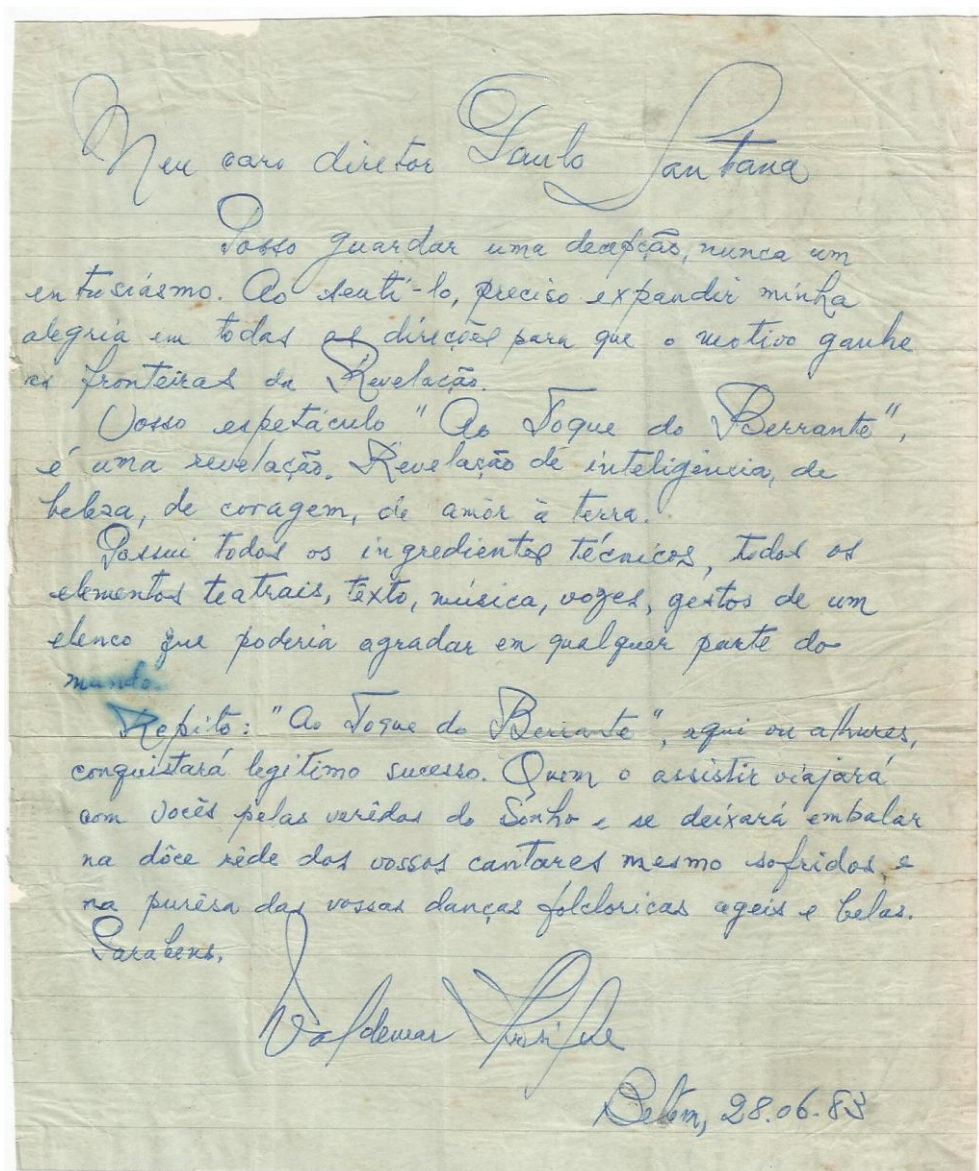 Meu caro diretor Paulo Santana
Posso guardar uma decepção, nunca um
entusiásmo. Ao sentí-lo, preciso expandir minha
alegria em todas as direções para que o motivo ganhe
as fronteiras da Revelação.
Vosso espetáculo "Ao Toque do Berrante",
é uma revelação. Revelação de inteligência, de
beleza, de coragem, de amôr à terra.
Possui todos os ingredientes técnicos, todos os
elementos teatrais, texto, música, vozes, gestos de um
elenco que poderia agradar em qualquer parte do
mundo.
Repito: "Ao Toque do Berrante", aqui ou alhures,
conquistará legítimo sucesso. Quem o assistir viajará
com vocês pelas verêdas do Sonho e se deixará embalar
na dôce rêde dos vossos cantares mesmo sofridos, e
na purêsa das vossas danças folcloricas ageis e belas.
Parabens.
Valdemar
Belém, 28.06.83